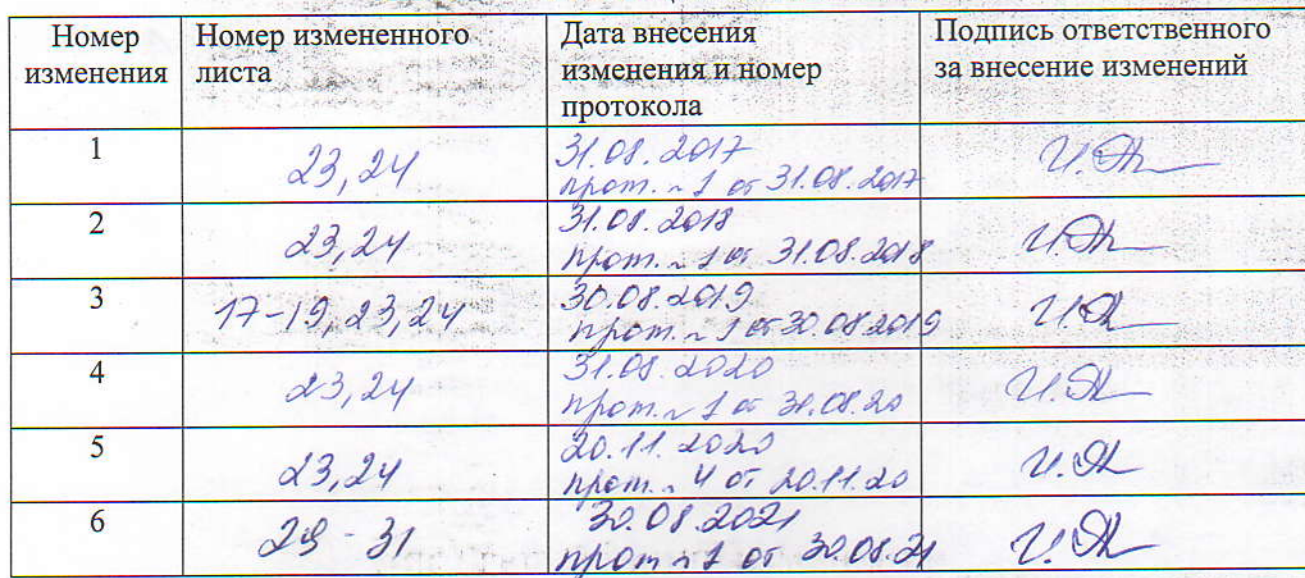 Номер изменения
Номер измененного листа
Дата внесения изменения и номер протокола
Подпись ответственного за внесение изменений
1
23,24
31.08.2017
прот. ~ 1 от 31.08.2017
2
23,24
31.08.2018
прот. ~ 1 от 31.08.2018
3
17-19, 23, 24
30.08.2019
прот. ~ 1 от 30.08.2019
4
23,24
31.08.2020
прот. ~ 1 от 31.08.20
5
23,24
20.11.2020
прот. ~ 4 от 20.11.20
6
29 - 31
30.08.2021
прот ~ 1 от 30.08.21